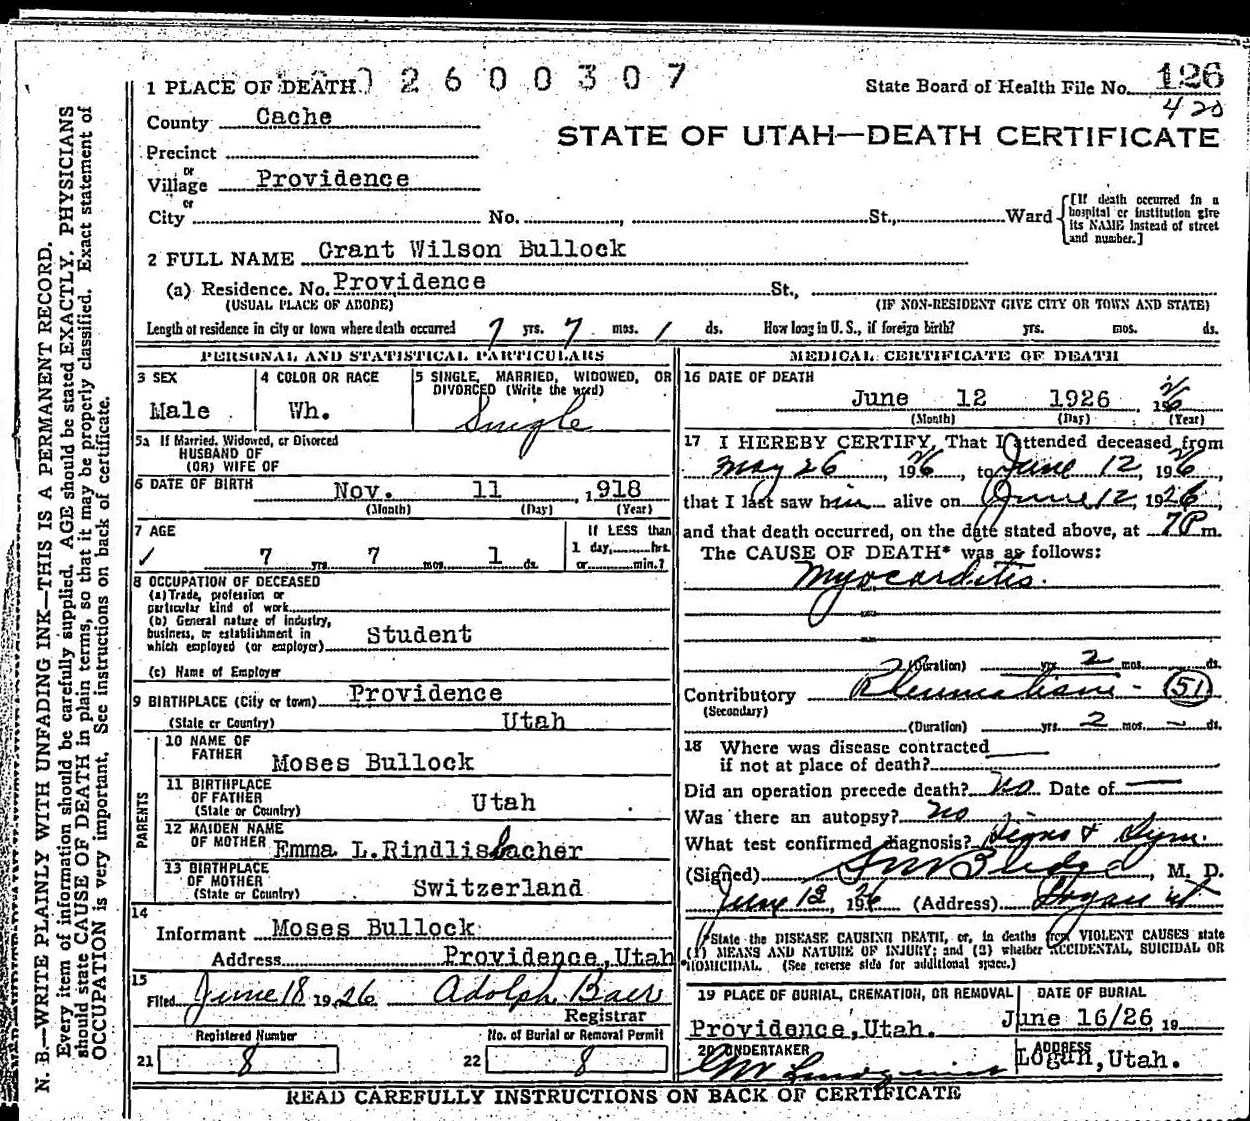 1 PLACE OF DEATH 0 2 6 0 0 3 0 7 State Board of Health File No. 126
420
County Cache
STATE OF UTAH—DEATH CERTIFICATE
Precinct
or
Village Providence
or
City No. St., Ward [If death occurred in a hospital or institution give its NAME instead of street and number.]
2 FULL NAME Grant Wilson Bullock
(a) Residence. No. Providence St.,
(USUAL PLACE OF ABODE) (IF NON-RESIDENT GIVE CITY OR TOWN AND STATE)
Length of residence in city or town where death occurred 7 yrs. 7 mos. 1 ds. How long in U. S., if foreign birth? yrs. mos. ds.
PERSONAL AND STATISTICAL PARTICULARS
3 SEX
Male
4 COLOR OR RACE
Wh.
5 SINGLE, MARRIED, WIDOWED, OR
DIVORCED (Write the word)
Single
5a If Married, Widowed, or Divorced
HUSBAND OF
(OR) WIFE OF
6 DATE OF BIRTH Nov. 11 , 1918
(Month) (Day) (Year)
7 AGE
7 yrs 7 mos. 1 ds.
If LESS than
1 day, hrs.
or min.?
8 OCCUPATION OF DECEASED
(a) Trade, profession or
particular kind of work
(b) General nature of industry,
business, or establishment in
which employed (or employer) Student
(c) Name of Employer
9 BIRTHPLACE (City or town) Providence
(State or Country) Utah
PARENTS
10 NAME OF
FATHER Moses Bullock
11 BIRTHPLACE
OF FATHER
(State or Country) Utah
12 MAIDEN NAME
OF MOTHER Emma L.Rindlisbacher
13 BIRTHPLACE
OF MOTHER
(State or Country) Switzerland
14
Informant Moses Bullock
Address Providence,Utah
15
Filed June 18 1926 Adolph Baer
Registrar
Registered Number
21 8
No. of Burial or Removal Permit
22 8
MEDICAL CERTIFICATE OF DEATH
16 DATE OF DEATH
June 12 1926 , 1926
(Month) (Day) (Year)
17 I HEREBY CERTIFY, That I attended deceased from
May 26, 1926, to June 12, 1926,
that I last saw him alive on June 12, 1926
and that death occurred, on the date stated above, at 7P m.
The CAUSE OF DEATH* was as follows:
Myocarditis.
(Duration) yrs. 2 mos. ds.
Contributory Rheumatism - (51)
(Secondary)
(Duration) yrs. 2 mos. – ds.
18 Where was disease contracted
if not at place of death?
Did an operation precede death? No. Date of —
Was there an autopsy? No
What test confirmed diagnosis? Signs & Sym.
(Signed) , M. D.
June 18, 1926 (Address) Logan Ut
*State the DISEASE CAUSING DEATH, or, in deaths from VIOLENT CAUSES state
(1) MEANS AND NATURE OF INJURY; and (2) whether ACCIDENTAL, SUICIDAL OR
HOMICIDAL. (See reverse side for additional space.)
19 PLACE OF BURIAL, CREMATION, OR REMOVAL
Providence,Utah.
DATE OF BURIAL
June 16/26, 19
20 UNDERTAKER
ADDRESS
Logan,Utah.
READ CAREFULLY INSTRUCTIONS ON BACK OF CERTIFICATE
N. B.—WRITE PLAINLY WITH UNFADING INK—THIS IS A PERMANENT RECORD.
Every item of information should be carefully supplied. AGE should be stated EXACTLY. PHYSICIANS
should state CAUSE OF DEATH in plain terms, so that it may be properly classified. Exact statement of
OCCUPATION is very important. See instructions on back of certificate.